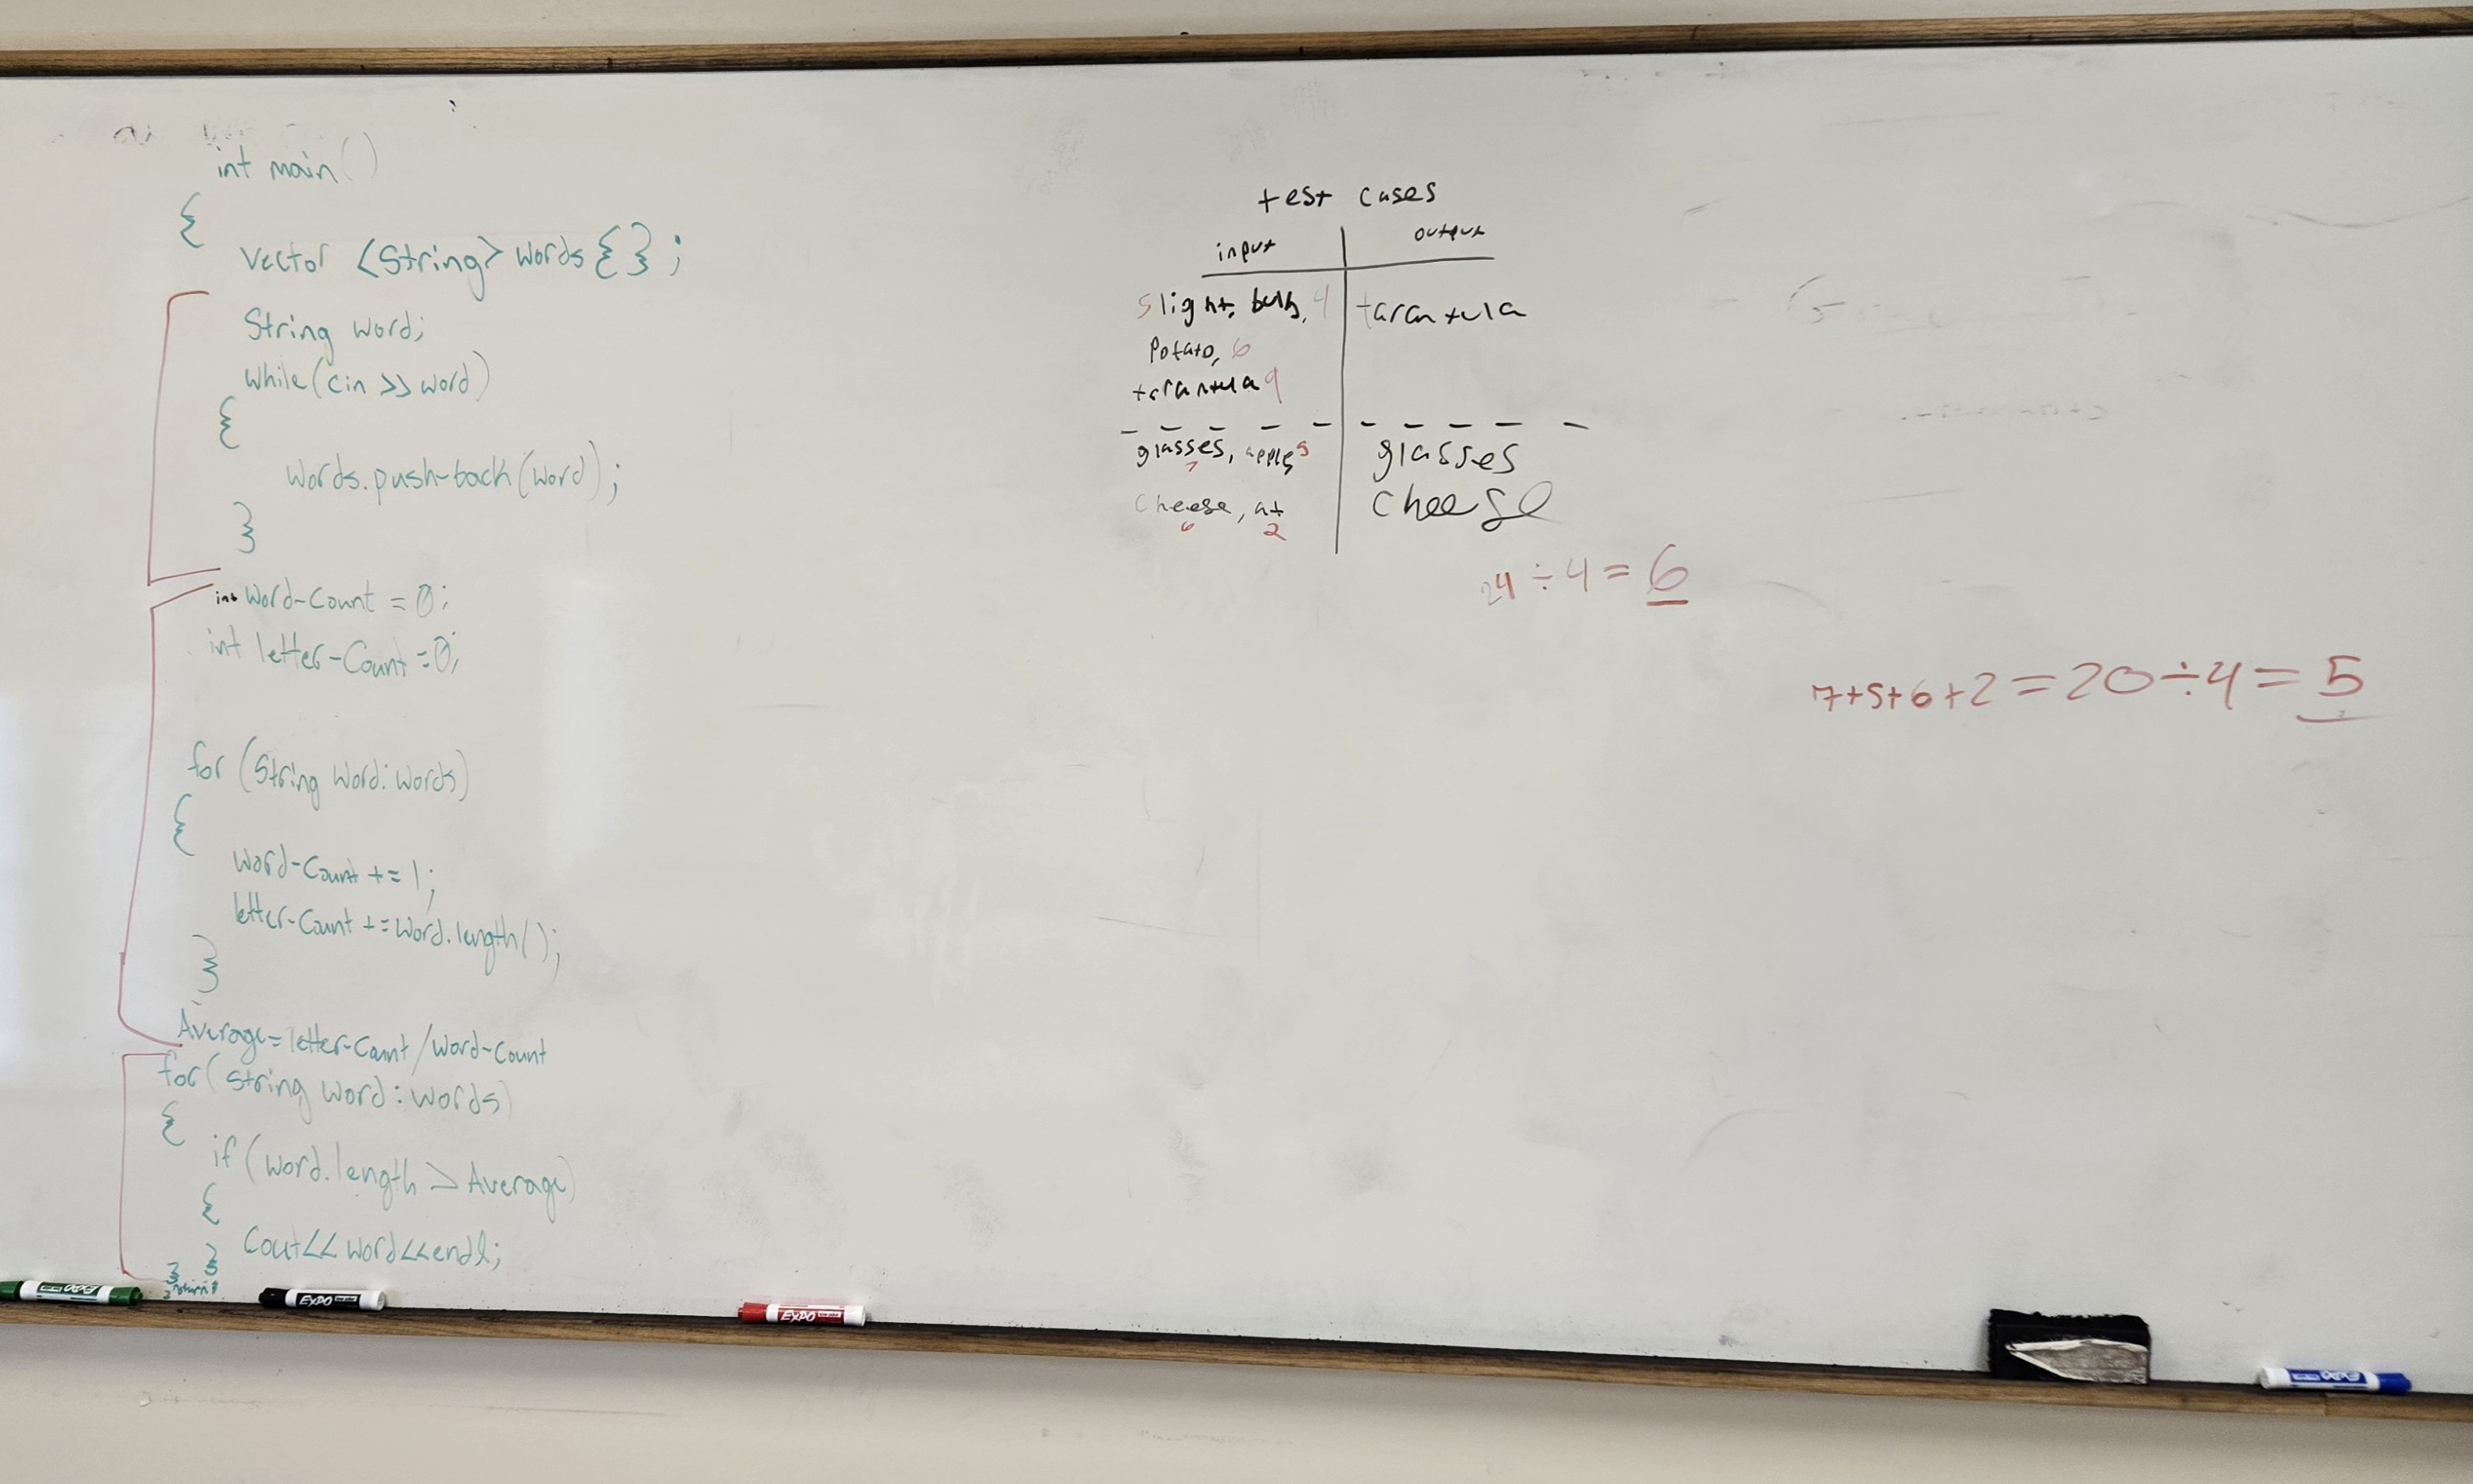 int main()
{
vector <String> words {};
String word;
while(cin >> word)
{
words.push-back(word);
}
int word-count = 0;
int letter-count = 0;
for (String word: words)
{
word-count += 1;
letter-count += word.length();
}
Average = letter-count / word-count
for (string word: words)
{
if (word.length > Average)
{
cout << word << endl;
}
}
return 0
}
test cases
input output
5 light, bulb, 4 tarantula
potato, 6
tarantula 9
glasses, apple 5 glasses
7
cheese, at cheese
6 2
24 ÷ 4 = 6
7+5+6+2 = 20 ÷ 4 = 5
EXPO
EXPO
EXPO
EXPO